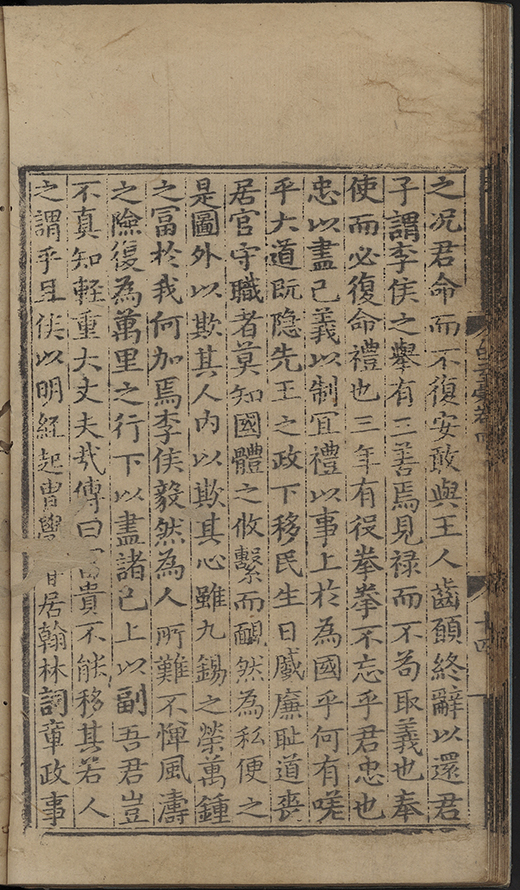 卷四
十四
之况君命而不復安敢與王人齒願終辭以還君
子謂李侯之舉有三善焉見禄而不苟取義也奉
使而必復命禮也三年有役拳拳不忘乎君忠也
忠以盡己義以制冝禮以事上於為國乎何有嗟
乎大道既隐先王之政下移民生日慼廉耻道喪
居官守職者莫知國體之攸繫而靦然為私便之
是圖外以欺其人内以欺其心雖九錫之榮萬鍾
之冨於我何加焉李侯毅然為人所難不憚風濤
之險復為萬里之行下以盡諸己上以副吾君豈
不真知軽重大丈夫㢤傳曰富貴不能移其若人
之謂乎且侯以明經起胄學居翰林詞章政事